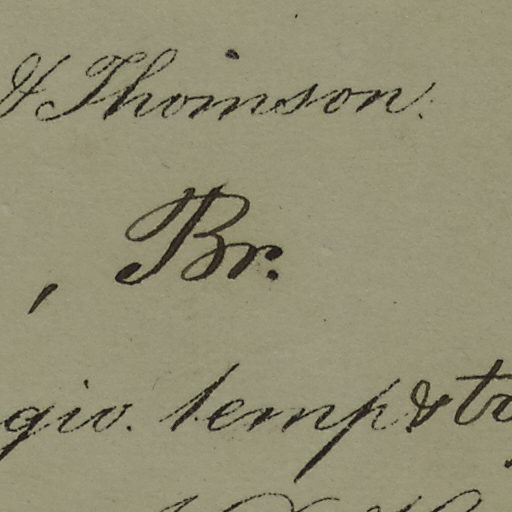 & Thomson.
, Br.
gio. temp & tr